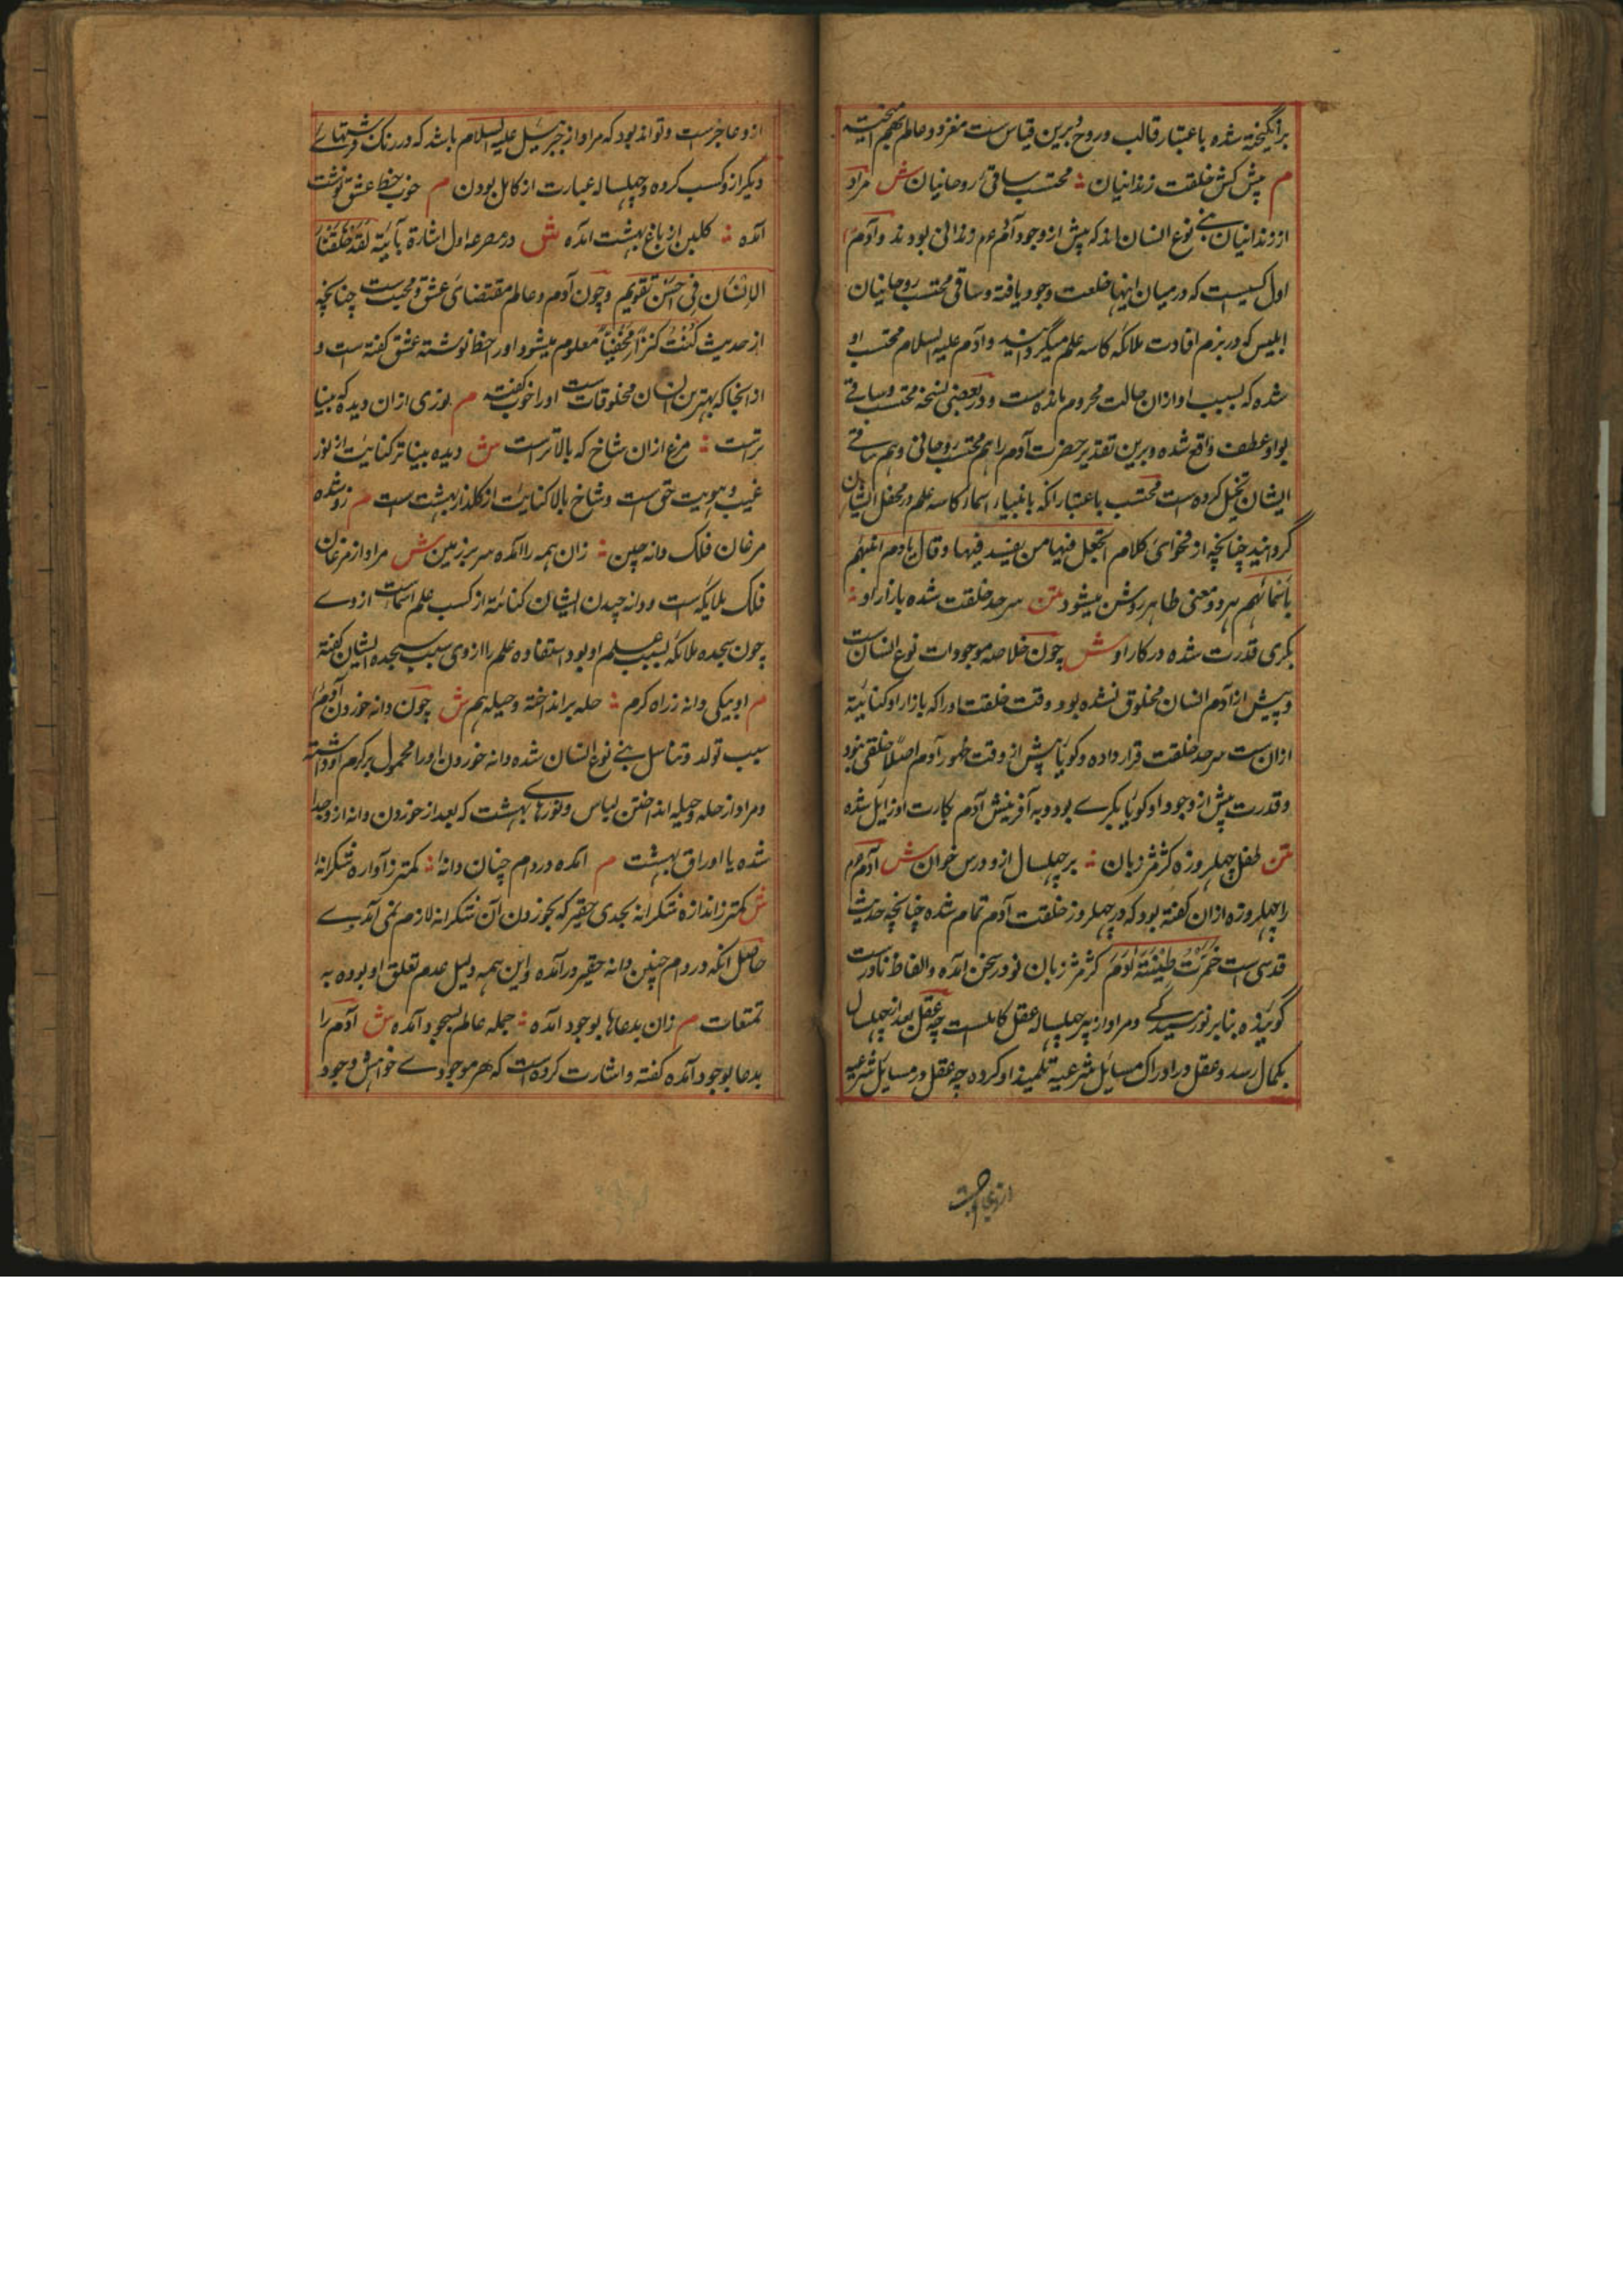 برانگیخته شده باعتبار قالب و روح و برین قیاس ست مغز دو عالم بهم آمیخته
م پیش کش خلقت زندانیان ؞ محتسب ساقی روحانیان ش مراد
از زندانیان بنے نوع انسان اند که پیش از وجود آدم عم زندانی بودند و آدم
اول کسیست که درمیان اینها خلعت وجود یافته و ساقی محتسب روحانیان
ابلیس که در بزم افادت ملائکه کاسه علم میگردانید و آدم علیه السلام محتسب او
شده که بسبب او ازان حالت محروم مانده ست و در بعضی نسخه محتسب و ساقے
بواو عطف واقع شده و برین تقدیر حضرت آدم را هم محتسب روحانی و هم ساقے
ایشان تخیل کرده ست محتسب باعتبار آنکه بانبیاء اسماء کاسه علم در محفل ایشان
گردانید چنانچه از فحوای کلام اتجعل فیها من یفسد فیها و قال یا آدم انبئهم
باسمائهم هر دو معنی ظاهر روشن میشود متن سرحد خلقت شده بازار او ؞
بکری قدرت شده در کار او ش چون خلاصه موجودات نوع انسان ست
و پیش از آدم انسان مخلوق نشده بود وقت خلقت او را که بازار او کنایة
ازان ست سرحد خلقت قرار داده و کویا پیش از وقت ظهور آدم اصلا خلقی نبود
و قدرت پیش از وجود او کویا بکرے بود و به آفرینش آدم بکارت او زایل شده
متن طفل چهل روزه کژمژ زبان ؞ پر چهل سال ازو درس خوان ش آدم عم
را چهل روزه ازان کفته بود که در چهل روز خلقت آدم تمام شده چنانچه حدیث
قدسی است خمرت طینة آدم کژمژ زبان نو در سخن آمده و الفاظ نادرست
گوینده بنابر نورسیدگے و مراد از پیر چهل ساله عقل کاملست چه عقل بعد از چهل سال
بکمال رسد و عقل در ادراک مسایل شرعیه تلمیذ او کرده چه عقل در مسایل شرعیه
ازو عاجزست
ازو عاجزست و تواند بود که مراد از جبرئیل علیه السلام باشد که در رنک فرشتهاے
دیکر ازو کسب کرده و چهل ساله عبارت از کامل بودن م خوب خط عشق نوشت
آمده ؞ کلبن از باغ بهشت آمده ش در مصرعه اول اشارة بآیة لَقَدْ خَلَقْنَا
الاِنْسَانَ فِی اَحْسَنِ تَقْوِیم و چون آدم و عالم مقتضای عشق و محبت ست چنانچه
از حدیث کُنْتُ کَنْزاً مَخْفِیّاً معلوم میشود او را خط نوشته عشق کفته ست و
از انجا که بهترین انسان مخلوقات ست او را خوب کفته م نوری ازان دیده که بینا
ترست ؞ مرغ ازان شاخ که بالاترست ش دیده بینا تر کنایت از نور
غیب و هویت حق ست و شاخ بالا کنایت از کلذار بهشت ست م زو شده
مرغان فلک دانه چین ؞ زان همه را آمده سر بر زمین ش مراد از مرغان
فلک ملایکه ست و دانه چیدن ایشان کنایة از کسب علم اسماست از وے
چون سجده ملائکه بسبب علم او بود استفاده علم را از وی سبب سجده ایشان کفته
م او بیکی دانه ز راه کرم ؞ حله برانداخته و حیله هم ش چون دانه خوردن آدم
سبب تولد و تناسل بنے نوع انسان شده دانه خوردن او را محمول بر کرم او داشته
و مراد از حله و حیله انداختن لباس و نورهاے بهشت که بعد از خوردن دانه از وجدا
شده یا اوراق بهشت م آمده در دام چنان دانه ؞ کمتر ز آواره شکرانه
ش کمتر ز اندازه شکرانه بجدی حقیر که بخوردن آن شکرانه لازم نمی آمدے
حاصل آنکه در دام چنین دانه حقیر در آمده و این همه دلیل عدم تعلق او بوده به
تمتعات م زان بدعاها بوجود آمده ؞ جمله عالم بسجود آمده ش آدم را
بدعا بوجود آمده کفته و اشارت کرده ست که هر موجودے خواهش وجود